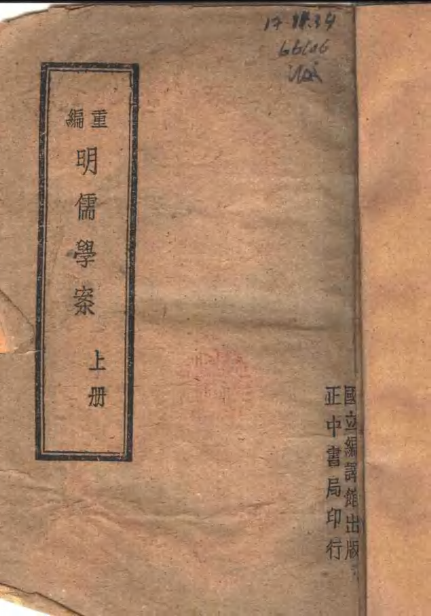 重編
明儒學案
上册
國立編譯館出版
正中書局印行
17
66606